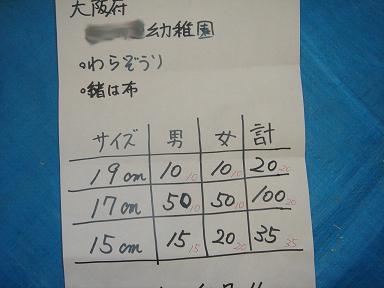 大阪府
幼稚園
。わらぞうり
。緒は布
サイズ 男 女 計
19cm 10 10 10 10 20 20
17cm 50 10 50 10 100 20
15cm 15 15 20 20 35 35